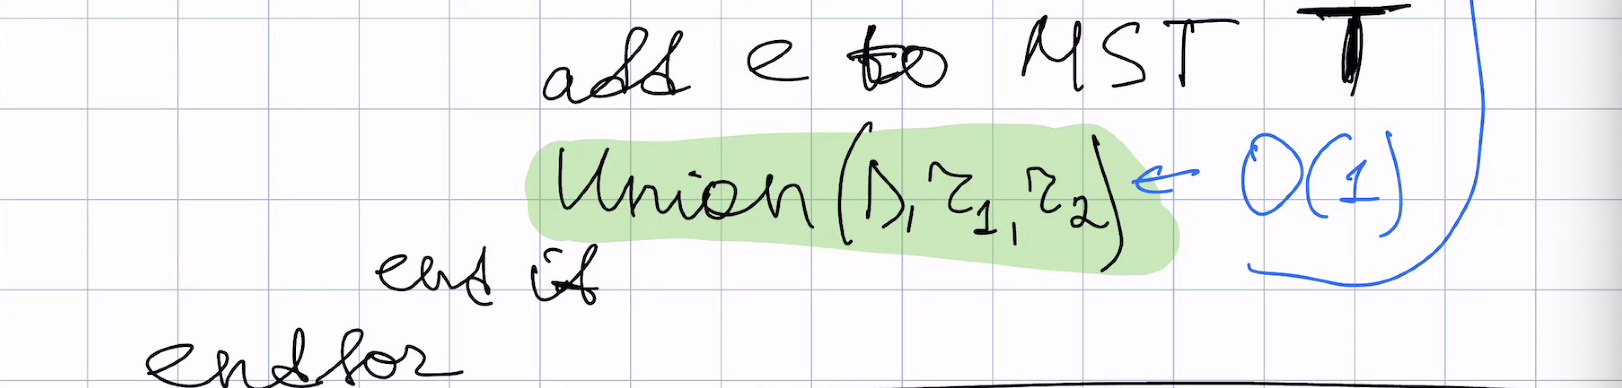 add e to MST T
Union(D, r1, r2) ← O(1)
end if
endfor